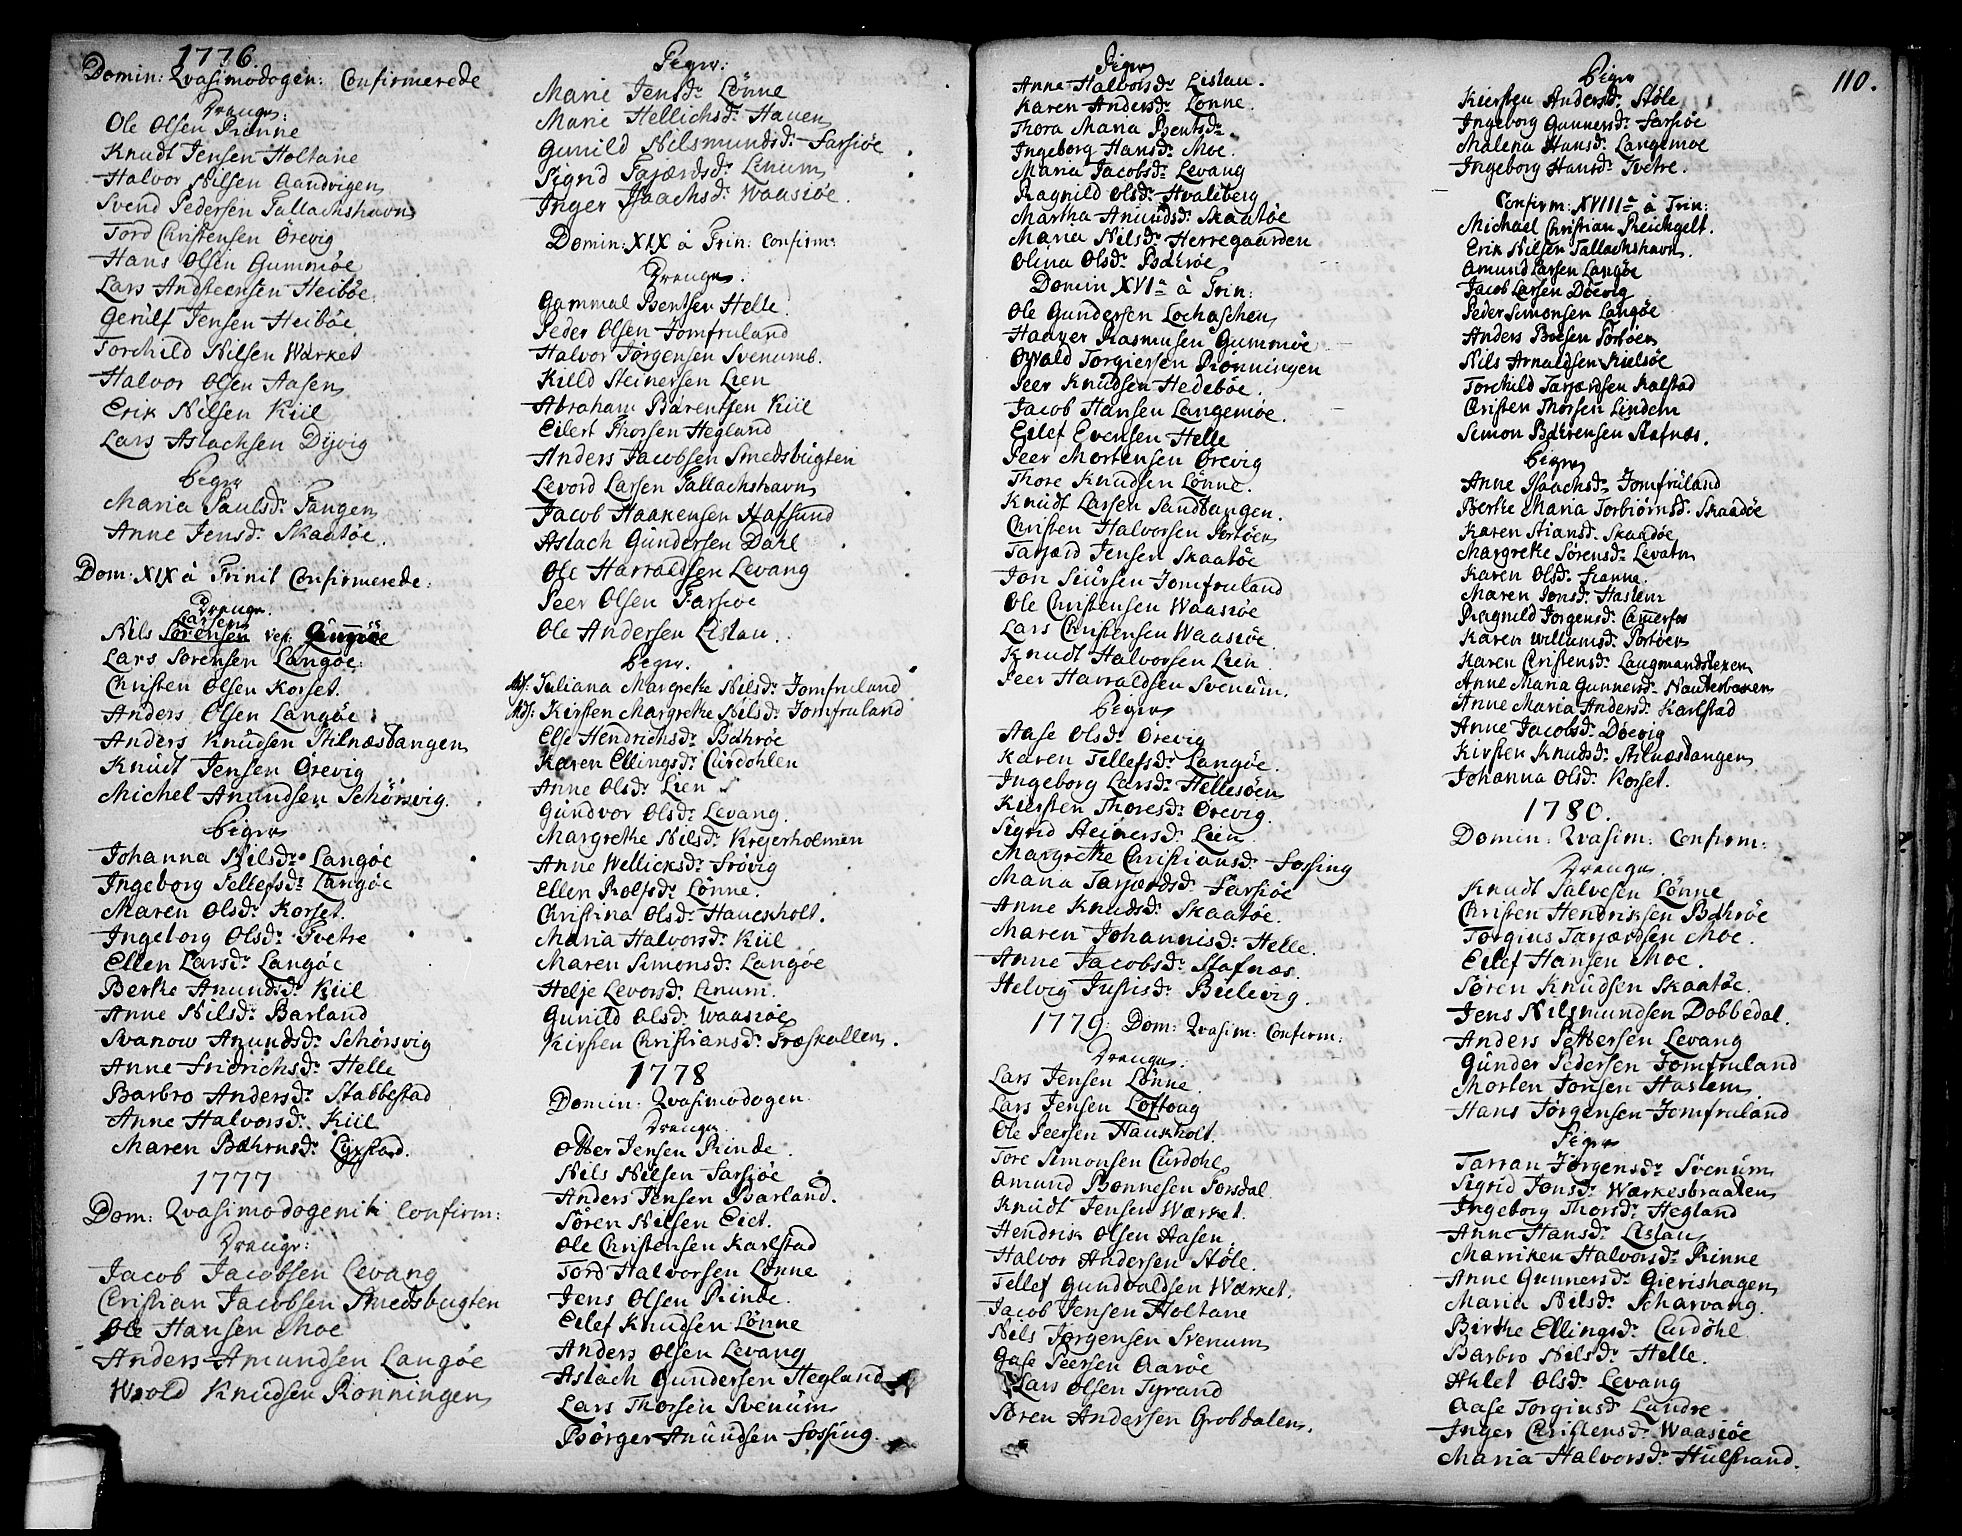 1776.
Domin: Qvasimodogen: Confirmerede
Drenge:
Ole Olsen Rinne
Knudt Jensen Holtane
Halvor Nilsen Aandvigen
Svend Pedersen Tallachshavn
Tord Christensen Ørevig
Hans Olsen Gummöe
Lars Andstensen Heiböe
Gerulf Jensen Heiböe
Torchild Nilsen Wærket
Halvor Olsen Aasen
Erik Nilsen Kiil
Lars Aslachsen Dÿvig
Piger
Maria Paulsd: Tangen
Anne Jensd: Skaatöe.
Dom: XIX à Trinit Confirmerede:
Drenge.
Larsen
Nils Sörensen vej: Gumöe
Lars Sörensen Langöe:
Christen Olsen Korset.
Anders Olsen Langöe:
Anders Knudsen Stilnæstangen
Knudt Jensen Ørevig
Michel Anundsen Schörsvig.
Piger
Johanna Nilsd: Langöe
Ingeborg Tellefsd: Langöe
Maren Olsd: Korset.
Ingeborg Olsd: Tvetre
Ellen Larsd: Langöe
Berthe Anundsd: Kiil
Anne Nilsd: Barland
Svanow Anundsd: Schörsvig
Anne Fridrichsd: Helle
Barbro Andersd: Stabbestad
Anne Halvorsd: Kiil
Maren Bæhrnsd: Lÿxstad.
1777
Dom: Qvasimodogeniti Confirm:
Drenge:
Jacob Jacobsen Levang
Christian Jacobsen Smedsbugten
Ole Hansen Moe
Anders Amundsen Langöe
Wrold Knudsen Rönningen
Piger:
Marie Jensd: Lönne
Marie Hellichsd: Haven
Gunild Nilsmundsd: Farsiöe
Sigrid Tajærdsd: Linum
Inger Isaachsd: Waasiöe.
Domin: XIX à Trin: Confirm:
Drenge:
Gammal Bentsen Helle.
Peder Olsen Jomfruland
Halvor Jörgensen Svenumb.
Killd Steinersen Lien
Abraham Barentsen Kiil
Eilert Thorsen Hegland
Anders Jacobsen Smedsbugten
Levord Larsen Tallachshavn
Jacob Haakensen Hafsund
Aslach Gundersen Dahl
Ole Harraldsen Levang
Peer Olsen Farsiöe
Ole Andersen Lislau.
Piger.
Juliana Margrethe Nilsd: Jomfruland
Kirsten Margrethe Nilsd: Jomfruland
Else Hendrichsd: Bæhröe
Karen Ellingsd: Curdohlen
Anne Olsd: Lien
Gundvor Olsd: Levang.
Margrethe Nilsd: Krejerholmen
Anne Wellicksd: Frövig
Ellen Rolfsd: Lönne.
Christina Olsd: Hauckholt.
Maria Halvorsd: Kiil
Maren Simonsd: Langöe
Helje Levorsd: Linum.
Gunild Olsd: Waasiöe
Kirsten Christiansd: Træskallen.
1778
Domin: Qvasimodogen.
Drenge.
Otter Jensen Rinde.
Nils Nilsen Farsiöe
Anders Jensen Barland.
Sören Nilsen Eict.
Ole Christensen Karlstad
Tord Halvorsen Lönne
Jens Olsen Rinde.
Eilef Knudsen Lönne
Anders Olsen Levang
Aslach Gundersen Hegland
Lars Thorsen Svenum
Börger Anundsen Fossing.
Piger
Anne Halvorsd: Lislau.
Karen Andersd: Lönne.
Thora Maria Bentsd:
Ingeborg Hansd: Moe.
Maria Jacobsd: Levang
Ragnild Olsd: Hvaleberg
Martha Anundsd: Skaatöe
Maria Nilsd: Herregaarden
Olina Olsd: Bæhröe
Domin XVI à Trin:
Ole Gundersen Lochaschen
Haaver Rasmusen Gummöe
Oswald Torgiersen Rönningen
Peer Knudsen Hedeböe.
Jacob Hansen Langemöe.
Eilef Evensen Helle
Peer Mortensen Ørevig
Thore Knudsen Lönne.
Knudt Larsen Sandtangen.
Christen Halvorsen Portöen
Tarjærd Jensen Skaatöe
Jon Siursen Jomfruland
Ole Christensen Waasiöe
Lars Christensen Waasiöe.
Knudt Halvorsen Lien
Peer Harraldsen Svenum.
Piger
Aase Olsd: Ørevig
Karen Tellefsd: Langöe.
Ingeborg Larsd: Hellesöen
Kiersten Thoresd: Ørevig.
Sigrid Steinersd: Lien
Margrethe Christiansd: Fossing
Maria Tarjærdsd: Farsiöe
Anne Knudsd: Skaatöe.
Maren Johannisd: Helle.
Anne Jacobsd: Stafnæs.
Helvig Justisd: Bielevig.
1779: Dom: Qvasim: Confirm:
Drenge:
Lars Jensen Lönne.
Lars Jensen Loftoug
Ole Peersen Hauskholt.
Tore Simonsen Curdohl
Amund Bonnesen Forsdal
Knudt Jensen Wærket.
Hendrik Olsen Aasen.
Halvor Andersen Stöle.
Tellef Gundvaldsen Wærket.
Jacob Jensen Holtane
Nils Jörgensen Svenum
Gase Peersen Aaröe
Lars Olsen Tyrand
Sören Andersen Grobdalen.
110.
Piger
Kiersten Andersd: Stöle
Ingeborg Gunnersd: Farsiöe
Malena Hansd: Langemoe
Ingeborg Hansd: Tvetre.
Confirm: XVIII à Trin:
Michael Christian Reichgelt.
Erik Nilsen Tallachshavn.
Amund Larsen Langöe
Jacob Larsen Döevig
Peder Simonsen Langöe
Anders Boesen Portöen
Nils Arnaldsen Kielsöe
Torchild Tarjærdsen Kalstad
Christen Thorsen Lindem
Simon Bæhrensen Stafnæs.
Piger
Anne Isaachsd: Jomfruland
Berthe Maria Torbiörnsd: Skaadöe
Karen Stiansd: Skaadöe
Margrethe Sörensd: Levatn
Karen Olsd: Hanne.
Maren Jonsd: Haslem
Ragnild Jorgensd: Cammerfos
Karen Willumsd: Portöen
Karen Christensd: Laugmandslexen
Anne Maria Gunnersd: Nauterbaken
Anne Maria Andersd: Karlstad
Anne Jacobsd: Döevig
Kirsten Knudsd: Stilnæstangen
Johanna Olsd: Korset.
1780.
Domin: Qvasim: Confirm:
Drenge.
Knudt Salvesen Lönne
Christen Hendriksen Bæhröe
Torgius Tarjærdsen Moe.
Eilef Hansen Moe.
Sören Knudsen Skaatöe.
Jens Nilsmundsen Dobbedal.
Anders Pettersen Levang
Gunder Pedersen Jomfruland
Morten Jonsen Haslem
Hans Jörgensen Jomfruland
Piger
Tarran Jörgensd: Svenum
Sigrid Jonsd: Wærkesbraaten
Ingeborg Thorsd: Hegland
Anne Hansd: Lislau
Marriken Halvorsd: Rinne
Anne Gunnersd: Gierishagen
Maria Nilsd: Scharvang.
Birthe Ellingsd: Curdöhl
Barbro Nilsd: Helle.
Ahlet Olsd: Levang
Aase Torgiusd: Lundre
Inger Christensd: Waasiöe
Maria Halvorsd: Hulstrand.